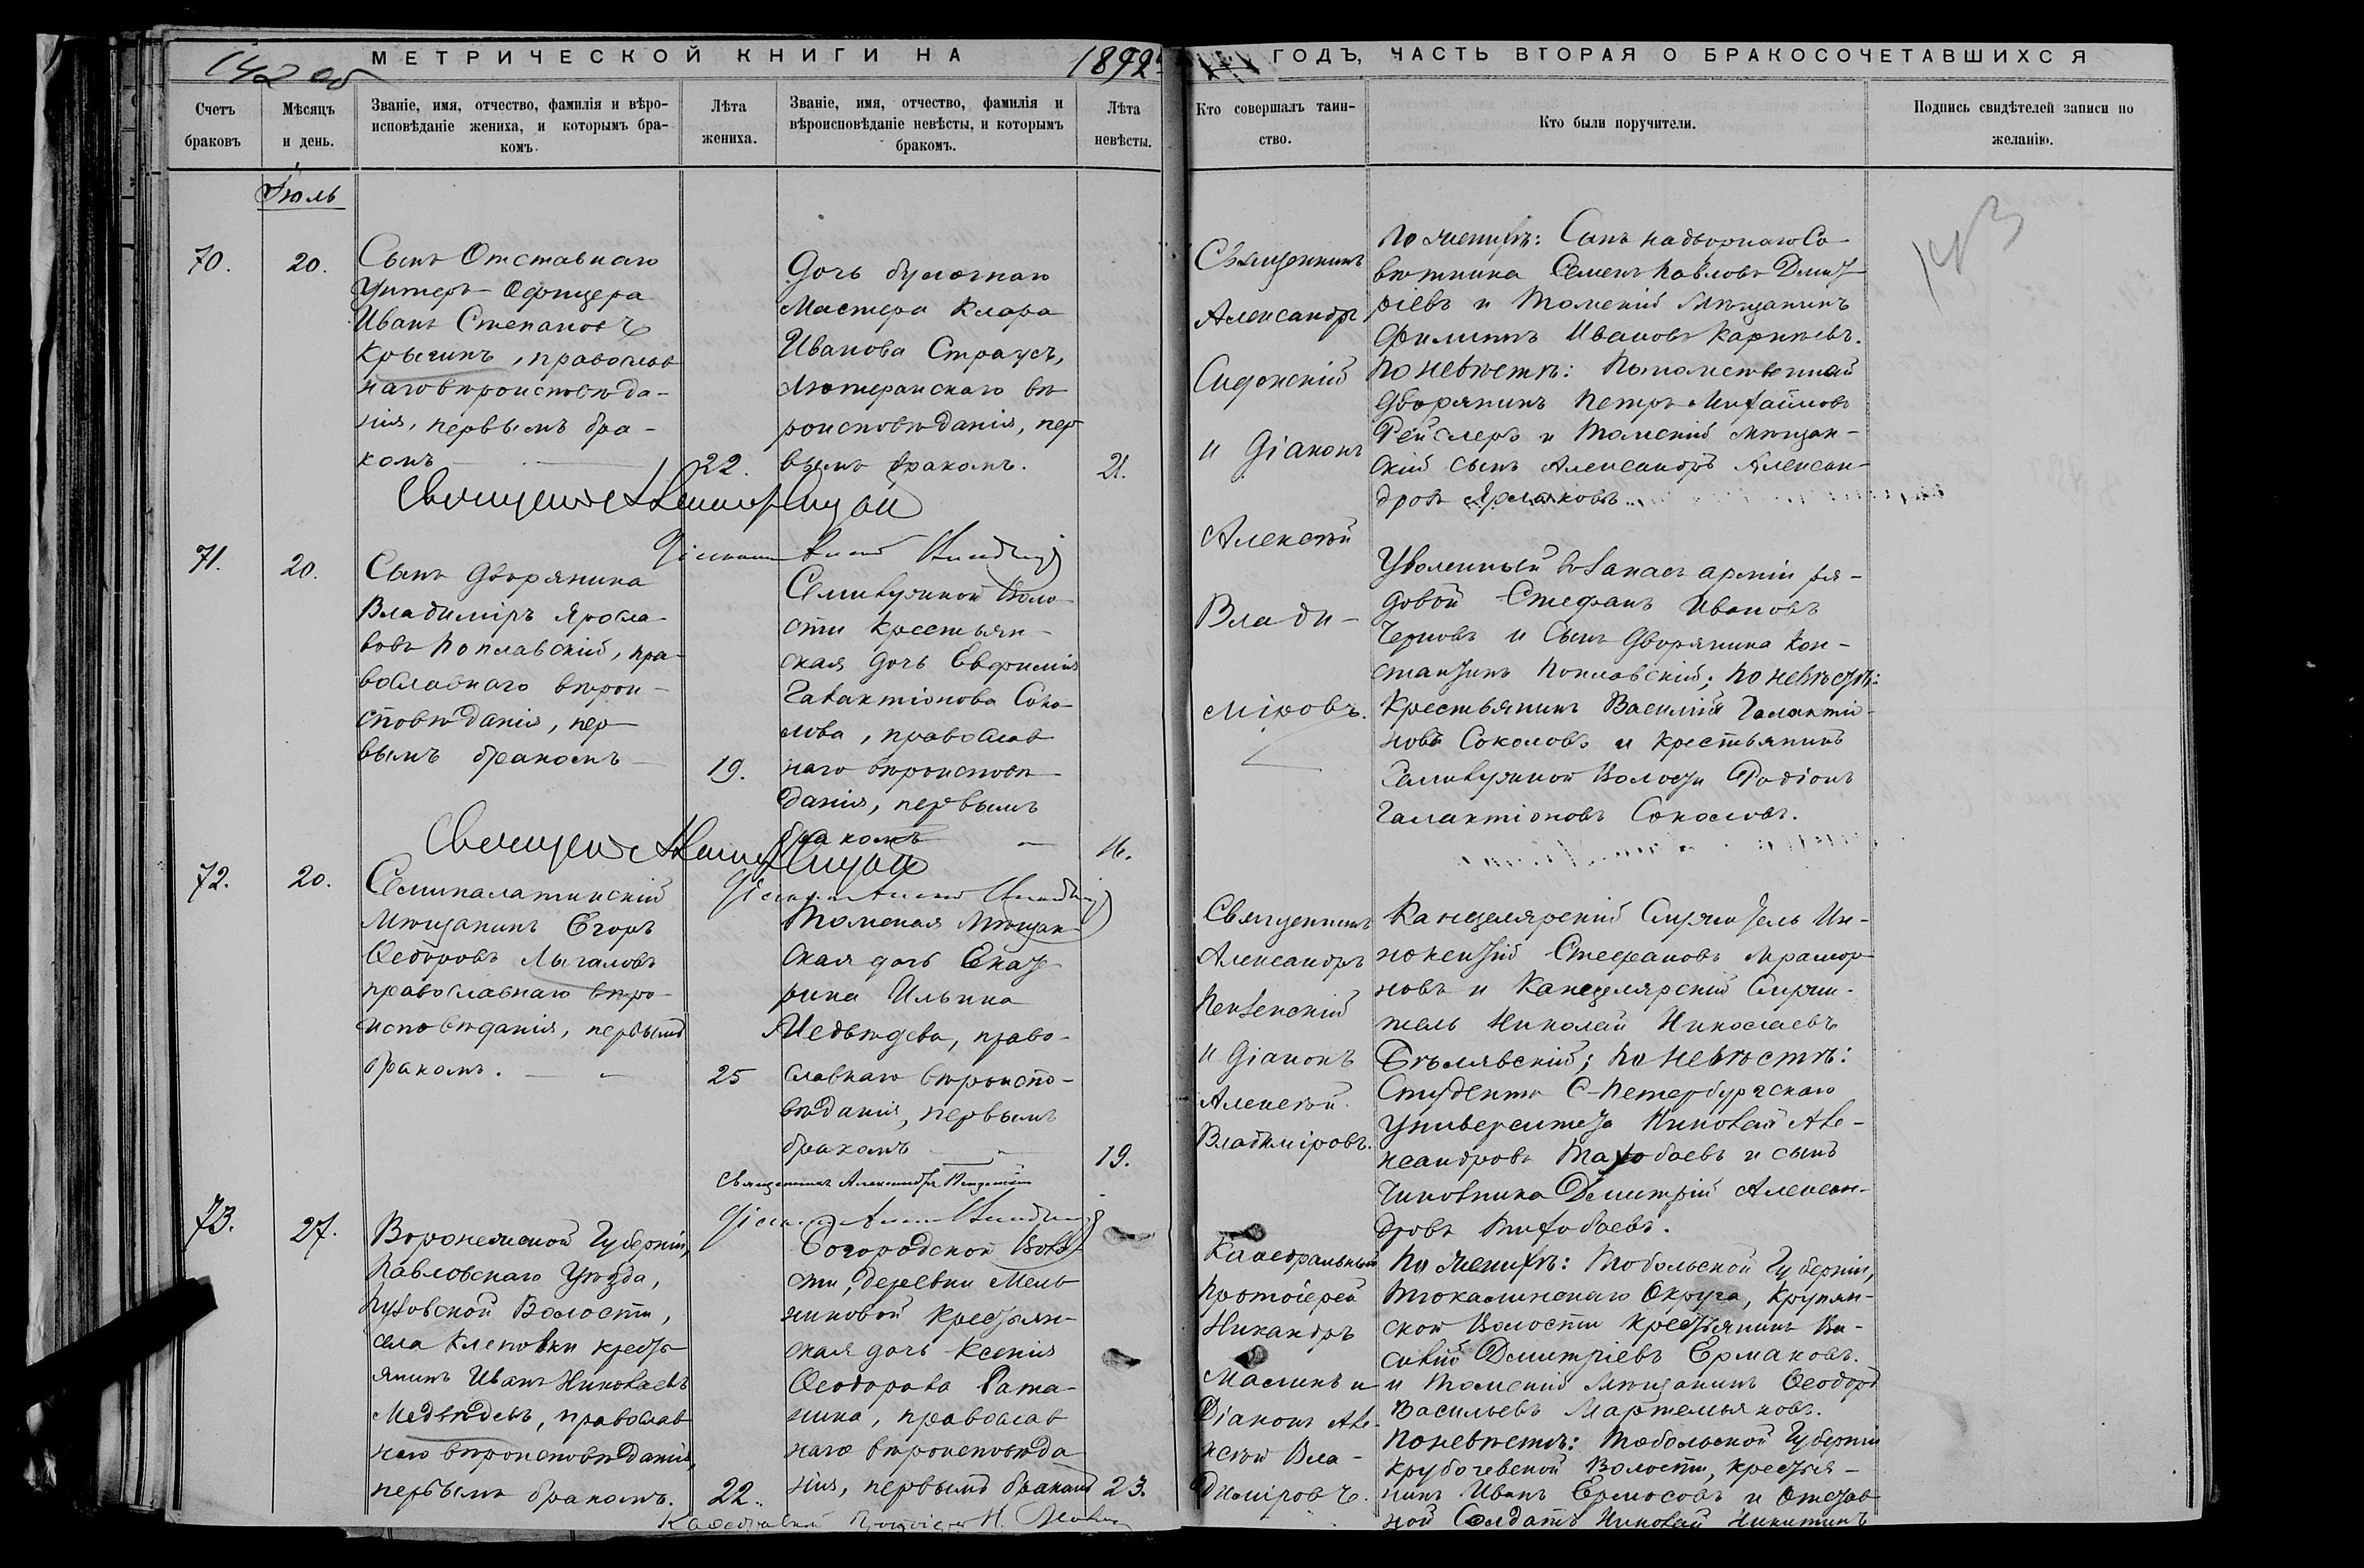 142 об
МЕТРИЧЕСКОЙ КНИГИ НА 1892
ГОДЪ, ЧАСТЬ ВТОРАЯ О БРАКОСОЧЕТАВШИХСЯ
Счетъ браковъ
Мѣсяцъ и день.
Званіе, имя, отчество, фамилія и вѣро-
исповѣданіе жениха, и которымъ бра-
комъ.
Лѣта жениха.
Званіе, имя, отчество, фамилія и
вѣроисповѣданіе невѣсты, и которымъ
бракомъ.
Лѣта невѣсты.
Кто совершалъ таин-
ство.
Кто были поручители.
Подпись свидѣтелей записи по
желанію.
Іюль
70.
20.
Сынъ Отставнаго
Унтеръ-Офицера
Иванъ Степановъ
Крыгинъ, православ
наго вѣроисповѣда-
нія, первымъ бра-
комъ
22.
Дочь булочнаго
Мастера Клара
Иванова Страусъ,
лютеранскаго вѣ
роисповѣданія, пер
вымъ бракомъ.
21.
Священникъ
Александръ
Сидонскій
и Діаконъ
Алексѣй
Влади-
міровъ.
По женихѣ: Сынъ надворнаго Со-
вѣтника Семенъ Павловъ Дмит-
ріевъ и Томскій Мѣщанинъ
Филиппъ Ивановъ Карпѣевъ.
По невѣстѣ: Потомственный
Дворянинъ Петръ Михайловъ
Рейслеръ и Томскій мѣщан-
скій сынъ Александръ Алексан-
дровъ Ярлыковъ.
143
71.
20.
Сынъ Дворянина
Владиміръ Яросла-
вовъ Поплавскій, пра-
вославнаго вѣрои-
сповѣданія, пер-
вымъ бракомъ
19.
Семилужной Воло-
сти Крестьян-
ская дочь Евфимія
Галактіонова Соко-
лова, православ
наго вѣроисповѣ-
данія, первымъ
бракомъ
16.
Уволенный въ запасъ арміи ря-
довой Стефанъ Ивановъ
Черновъ и Сынъ Дворянина Кон-
стантинъ Поплавскій; по невѣстѣ:
Крестьянинъ Василій Галактіо-
новъ Соколовъ и крестьянинъ
Семилужной Волости Родіонъ
Галактіоновъ Соколовъ.
72.
20.
Семипалатинскій
Мѣщанинъ Егоръ
Ѳедоровъ Лыгаловъ
православнаго вѣро-
исповѣданія, первымъ
бракомъ.
25
Томская Мѣщан-
ская дочь Екате-
рина Ильина
Медвѣдева, право-
славнаго вѣроиспо-
вѣданія, первымъ
бракомъ
19.
Священникъ Александръ Пензенскій
Священникъ
Александръ
Пензенскій
и Діаконъ
Алексѣй
Владиміровъ.
Канцелярскій Служитель Ин-
нокентій Стефановъ Мрамор-
новъ и Канцелярскій Служи-
тель Николай Николаевъ
Бѣлявскій; по невѣстѣ:
Студентъ С-Петербургскаго
Университета Николай Але-
ксандровъ и сынъ
Чиновника Димитрій Алексан-
дровъ
73.
27.
Воронежской Губерніи,
Павловскаго Уѣзда,
Пузовской Волости,
села Клеповки кресть-
янинъ Иванъ Николаевъ
Медвѣдевъ, православ
наго вѣроисповѣданія,
первымъ бракомъ.
22.
Богородской Воло-
сти, деревни Мель-
никовой Крестьян-
ская дочь Ксенія
Ѳеодорова Рата-
нина, православ
наго вѣроисповѣда
нія, первымъ бракомъ
23.
Каѳедральный
протоіерей
Никандръ
Малинъ и
Діаконъ Але-
ксѣй Вла-
диміровъ.
По женихѣ: Тобольской Губерніи,
Тюкалинскаго Округа, Крупян-
ской Волости крестьянинъ Ва-
силій Дмитріевъ Ермаковъ.
и Томскій Мѣщанинъ Ѳеодоръ
Васильевъ Мартемьяновъ.
По невѣстѣ: Тобольской Губерніи
Волости, крестья-
нинъ Иванъ Ермосовъ и Отстав
ной Солдатъ Николай Никитинъ